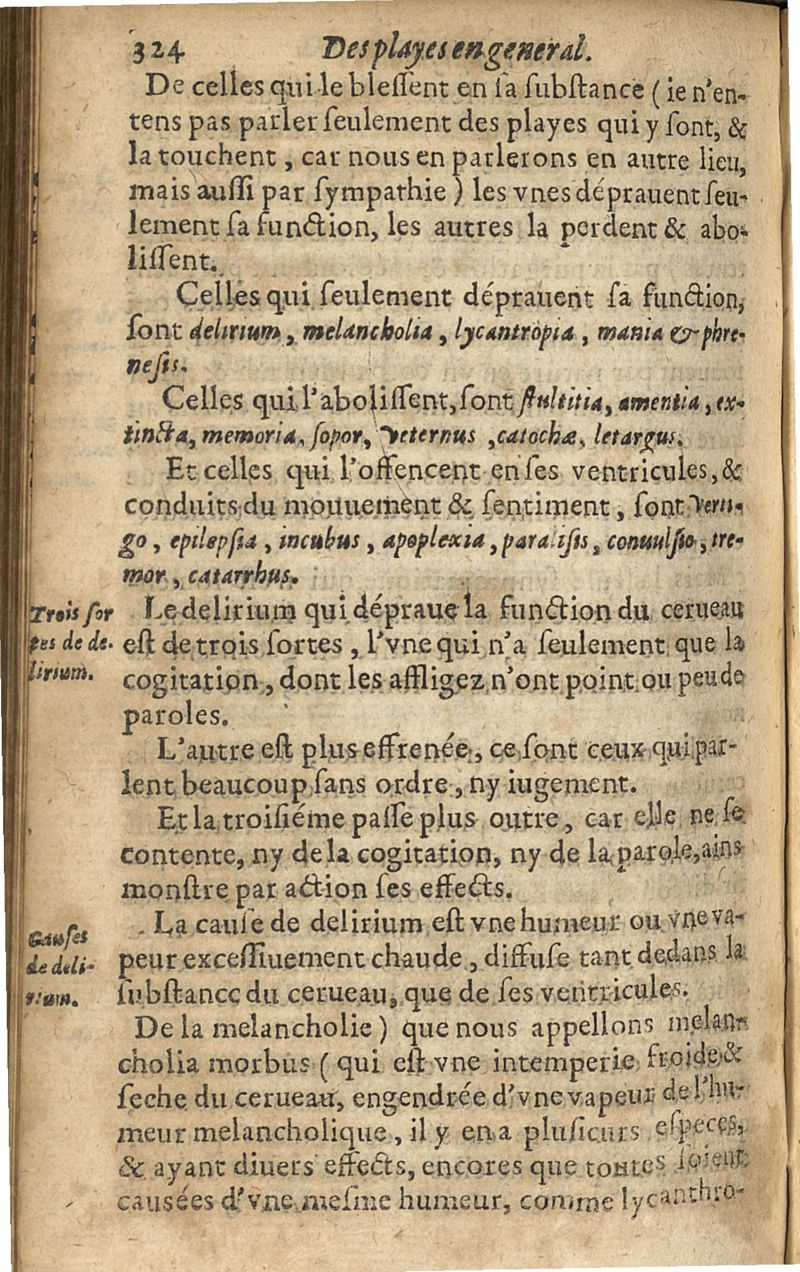 324 Des playes en general.
De celles qui le blessent en sa substance (ie n'en-
tens pas parler seulement des playes qui y sont, &
la touchent, car nous en parlerons en autre lieu,
mais aussi par sympathie) les vnes dépravent seu-
lement sa function, les autres la perdent & abo-
lissent.
Celles qui seulement dépravent sa function,
sont delirium, melancholia, lycantropia, mania & phre-
nesis.
Celles qui l'abolissent, sont stultitia, amentia, ex-
tincta, memoria, sopor, veternus, catochæ, letargus.
Et celles qui l'offencent en ses ventricules, &
conduits du mouuement & sentiment, sont verti-
go, epilepsia, incubus, apoplexia, paralisis, conuulsio, tre-
mor, catarrhus.
Trois sor
tes de de-
lirium.
Le delirium qui dépraue la function du cerueau
est de trois sortes, l'vne qui n'a seulement que la
cogitation, dont les affligez n'ont point ou peu de
paroles.
L'autre est plus effrenée, ce sont ceux qui par-
lent beaucoup sans ordre, ny iugement.
Et la troisiéme passe plus outre, car elle ne se
contente, ny de la cogitation, ny de la parole, ains
monstre par action ses effects.
Causes
de deli-
rium.
La cause de delirium est vne humeur ou vne va-
peur excessiuement chaude, diffuse tant dedans la
substance du cerueau, que de ses ventricules.
De la melancholie) que nous appellons melan-
cholia morbus (qui est vne intemperie froide &
seche du cerueau, engendrée d'vne vapeur de l'hu-
meur melancholique, il y en a plusieurs especes,
& ayant diuers effects, encores que toutes soient
causées d'vne mesme humeur, comme lycanthro-